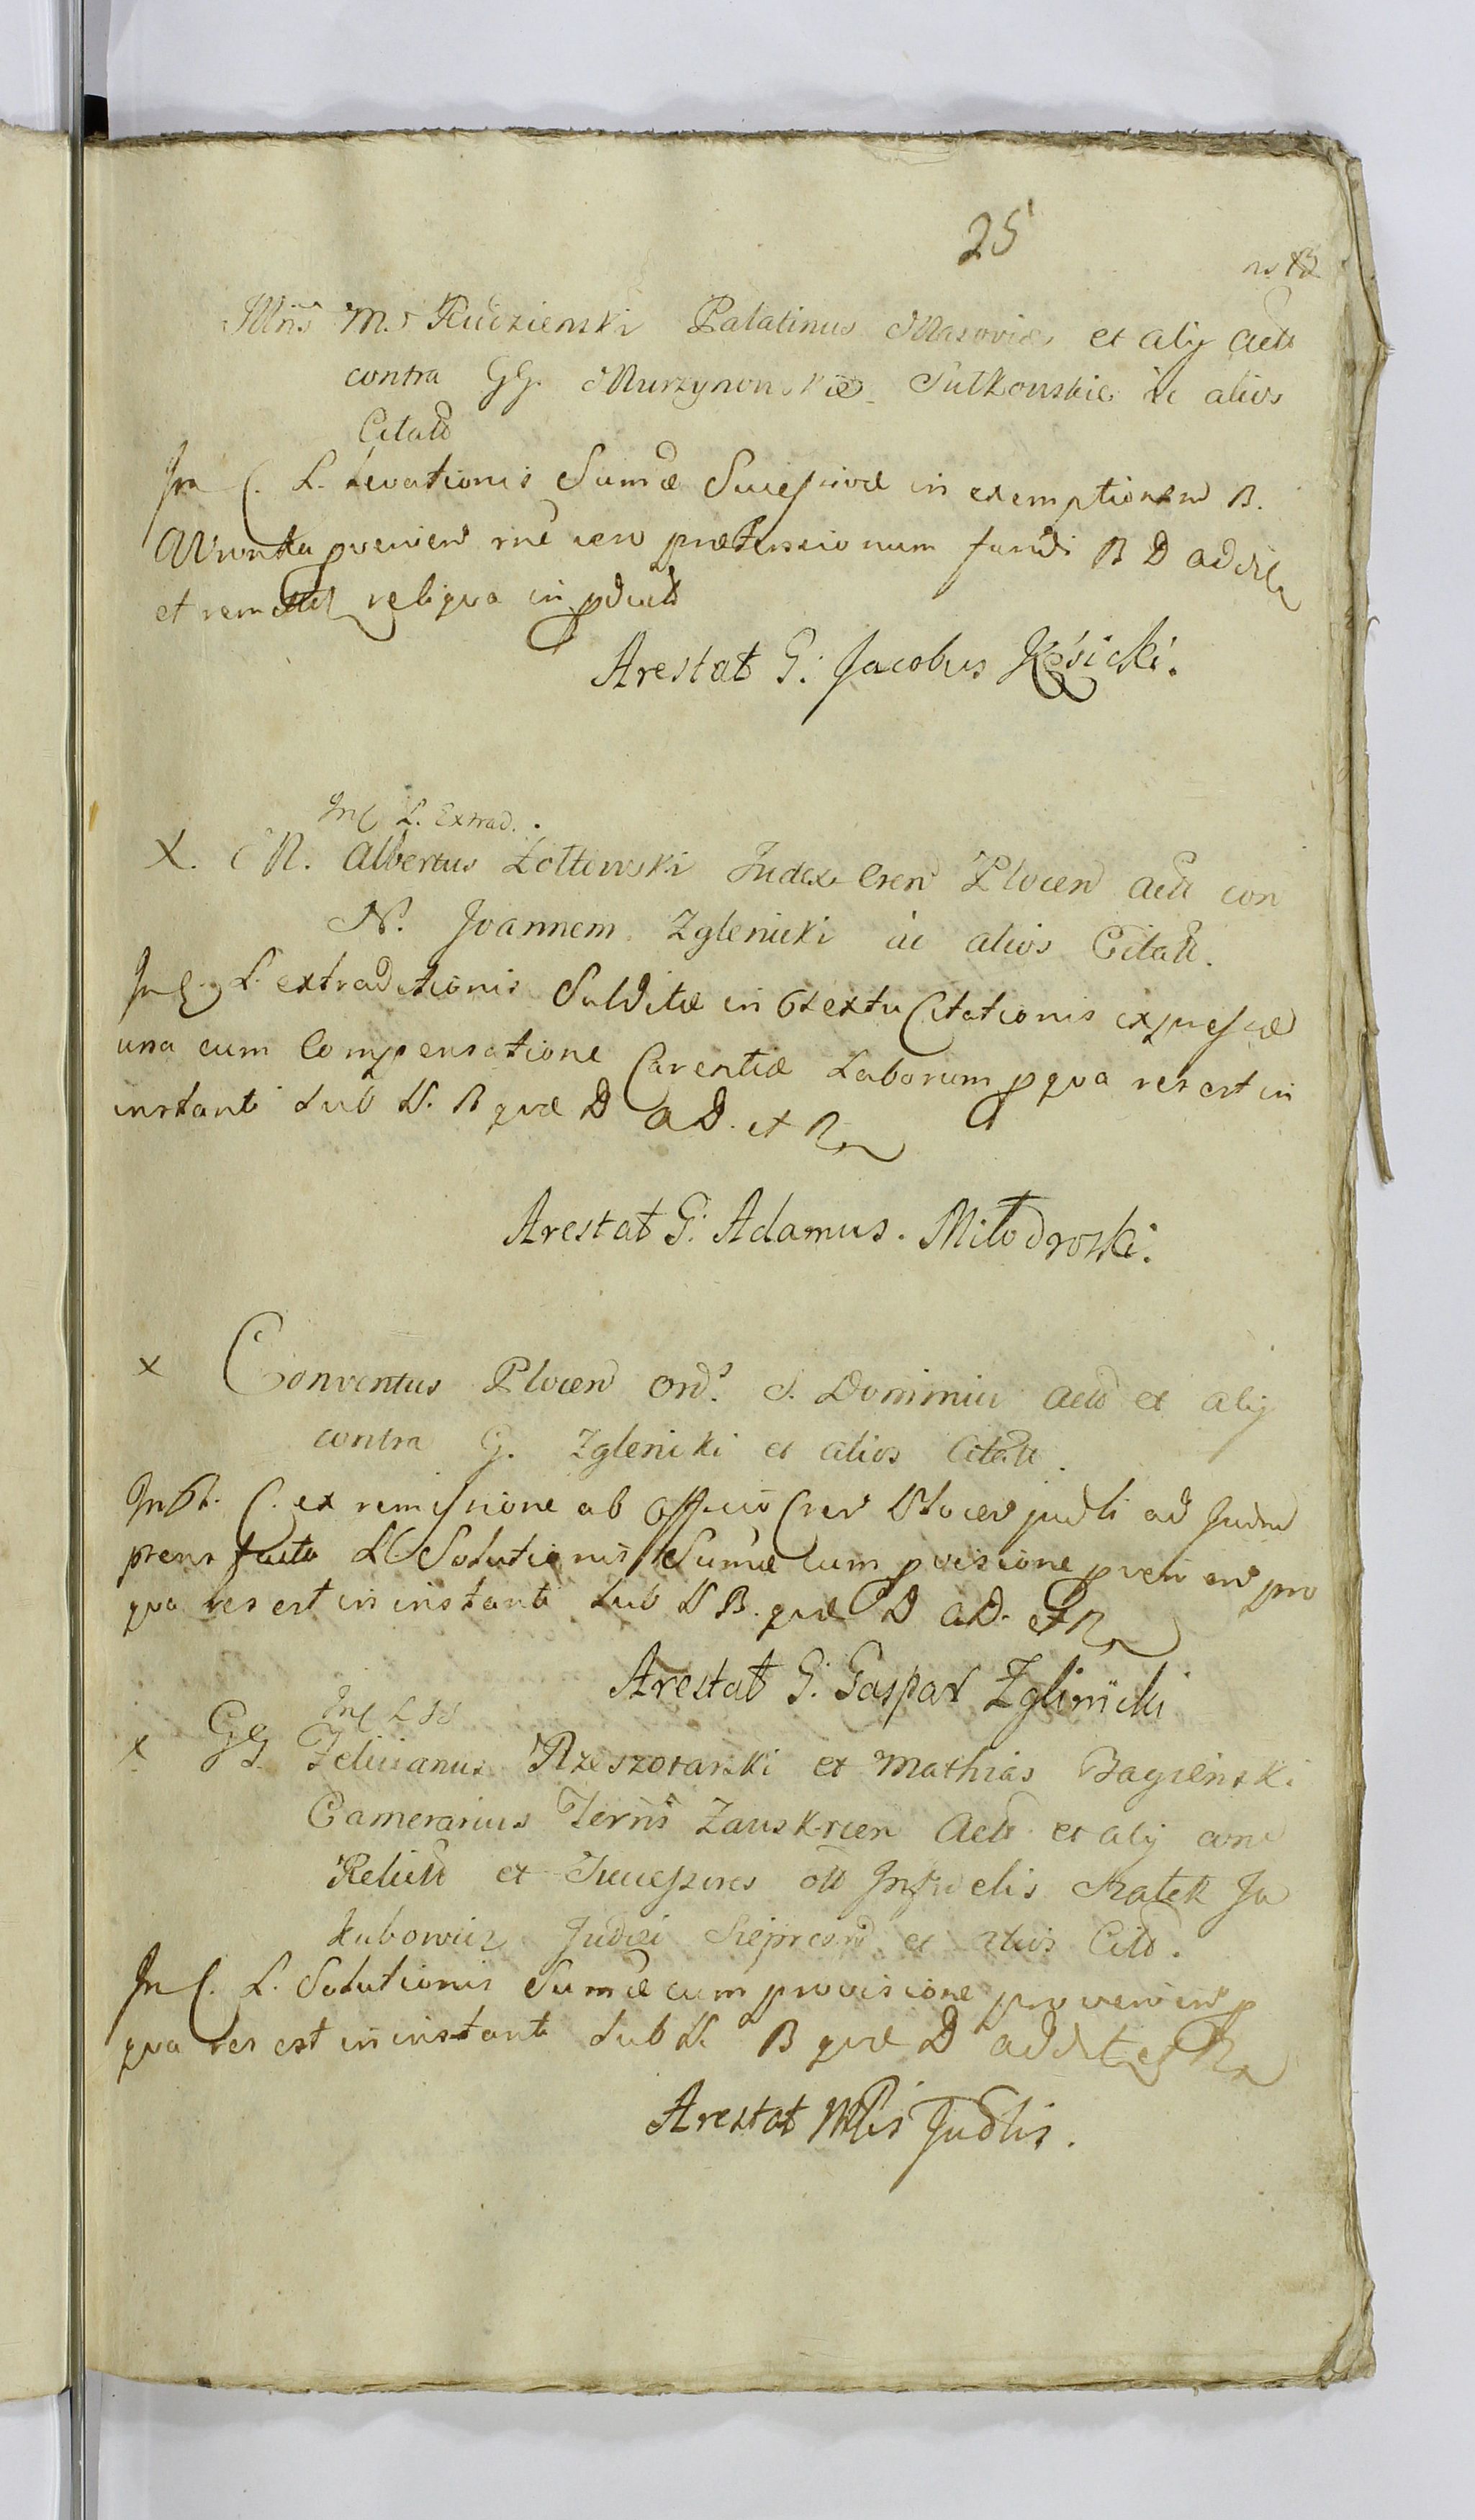 25
Illris M. Rudzienski Palatinus Masoviæ et alij Act
contra GG. Murzynowskie Sutkowskie et alios
Citatt
In C. L. levationis Sumæ Sucessivæ in exemptionem B.
provenien rne vero prætensionum fundi B D addit
et remittit reliqua in
Arestat G: Jacobus Kęsicki.
In C L. Extrad.
X. M. Albertus Zołtowski Judex Cren Plocen Act con
N. Joannem Zglenicki et alios Citatt.
In C. L. extraditionis Subditæ in Contextu Citationis expressæ
una cum Compensatione Carentiæ Laborum p qua res est in
instanti sub L. B quæ D a D. et R
Arestat G: Adamus. Miłodroski.
x Conventus Plocen Ord. S. Dominici Act et alij
contra G. Zglenicki et alios Citatt.
C. ex remissione ab Officio Cren Plocen judli ad Judm
prens facta L Solutionis Sumæ cum pvisione pvenien pro
qua res est in instanti sub L B. quæ D a D. et R
Arestat G: Gaspar Zglinicki
In C L
x GG. Felicianus Rzeszotarski et Mathias Bagienski
Camerarius Terris Zawskrcen Act et alij con
Relict et Sucessores olt Infidelis Szatek Ja
kubowicz Judæi Sieprcens et alios Citt.
In C. L. Solutionis Sumæ cum provisione provenien p
qua res est in instanti sub L. B quæ D addit et R
Arestat Mlis Judlis.